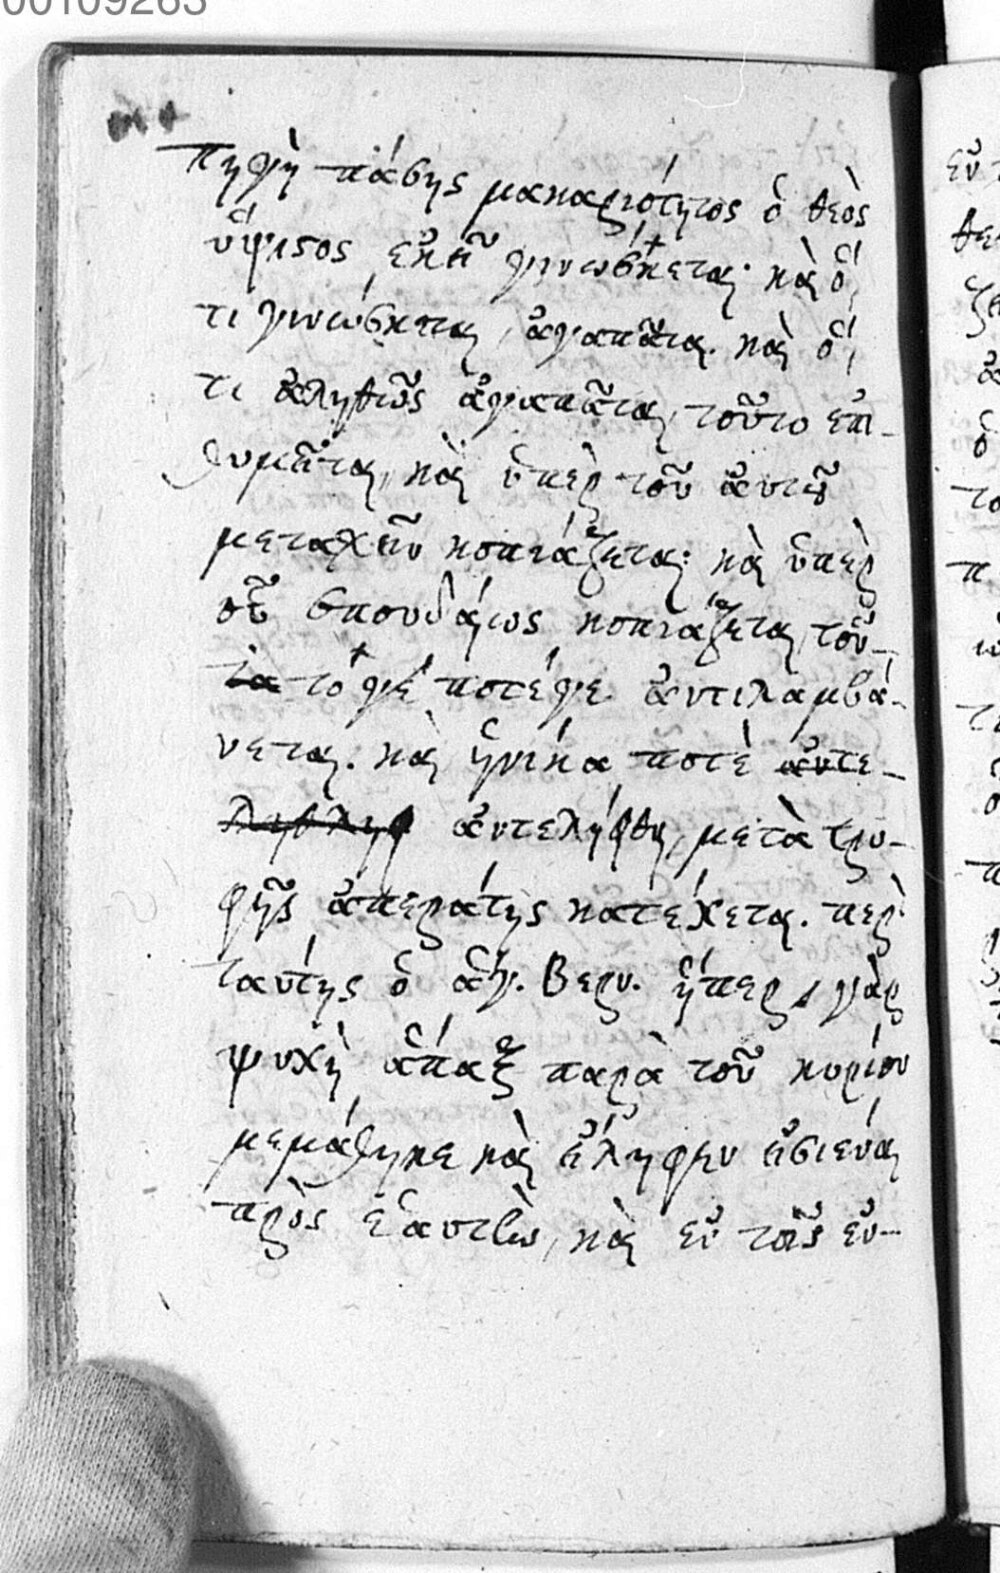 00109263
πηγὴ πάσης μακαριότητος ὁ θεὸς
ὕψιστος ἐκεῖ γινώσκεται· καὶ ὅ,
τι γινώσκεται, ἀγαπᾶται. καὶ ὅ,
τι ἀληθῶς ἀγαπᾶται, τοῦτο ἐπι-
θυμεῖται, καὶ ὑπὲρ τοῦ αὐτοῦ
μετασχεῖν κοπιάζεται: καὶ ὑπὲρ
οὗ σπουδαίως κοπιάζεται, τοῦ-
τα τό γε ποτέ γε ἀντιλαμβά-
νεται. καὶ ἡνίκα ποτὲ ἀντε-
ἀντελήφθη, μετὰ τρυ-
φῆς ἀπεράτης κατέχεται. περὶ
ταύτης ὁ ἅγ. Βερν. ἥπερ γὰρ
ψυχὴ ἅπαξ παρὰ τοῦ κυρίου
μεμάθηκε καὶ εἴληφεν εἰσιέναι
πρὸς ἑαυτὴν, καὶ ἐν τοῖς ἐν-